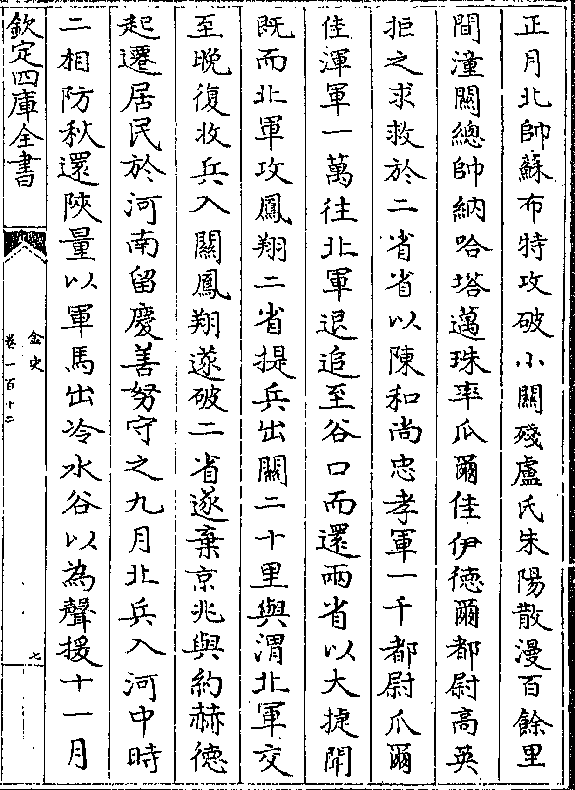 正月北帥蘇布特攻破小關殘盧氏朱陽散漫百餘里
間潼關總帥納哈塔邁珠率爪爾佳伊德爾都尉高英
拒之求救於二省省以陳和尚忠孝軍一千都尉爪爾
佳渾軍一萬往北軍退追至谷口而還兩省以大捷聞
既而北軍攻鳳翔二省提兵出關二十里與渭北軍交
至晚復收兵入關鳳翔遂破二省遂棄京兆與約赫德
起遷居民於河南留慶善努守之九月北兵入河中時
二相防秋還陝量以軍馬出冷水谷以為聲援十一月
欽定四庫全書
金史
卷一百十二
七